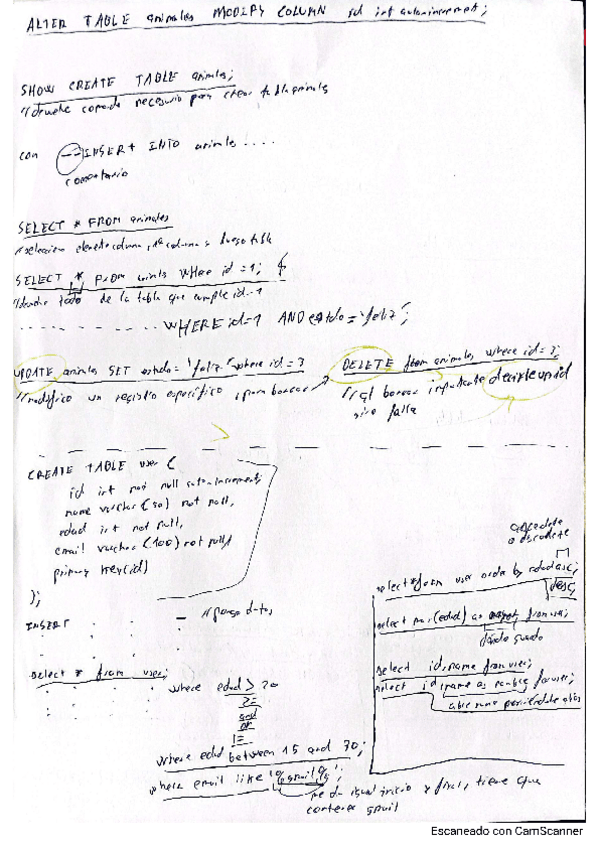 ALTER TABLE animales MODIFY COLUMN id int auto_increment;
SHOW CREATE TABLE animales;
//devuelve comando necesario para crear tabla animales
con --INSERT INTO animales ....
comentario
SELECT * FROM animales
//selecciono columna
SELECT * FROM where id = 1;
//devuelve todo de la tabla que cumple id=1
............. WHERE id=1 AND estado = 'feliz';
UPDATE animales SET estado = 'feliz' where id = 3
//modifico un registro especifico, para borrar
DELETE from animales where id = 3;
//al borrar importante decirle un id
sino falla
CREATE TABLE user (
id int not null auto_increment,
name varchar(50) not null,
edad int not null,
email varchar(100) not null,
primary key(id)
);
INSERT
// pongo datos
select * from user;
where edad > 20
>=
and
or
!=
where edad between 15 and 30;
where email like '%gmail%';
me da igual inicio y final, tiene que
contener gmail
ascendete
o descendete
select * from user order by edad asc;
desc;
select max(edad) as mayor from user;
select id, name from user;
select id, name as nombre from user;
Escaneado con CamScanner